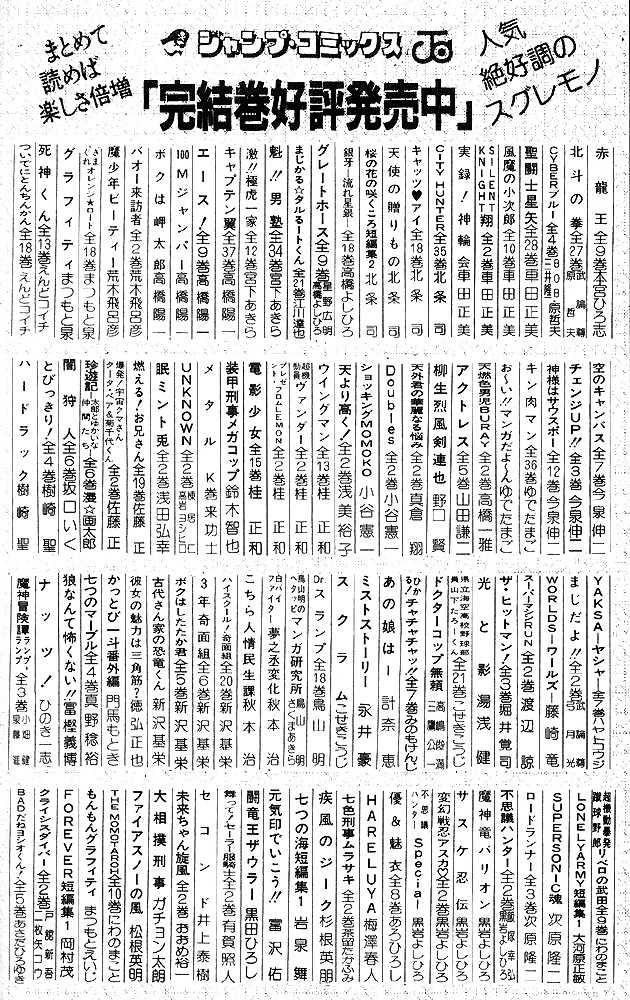 まとめて
読めば
楽しさ倍増
ジャンプ・コミックス
人気
絶好調の
スグレモノ
「完結巻好評発売中」
赤龍王 全9巻 本宮ひろ志
北斗の拳 全27巻 武論尊 原哲夫
CYBERブルー 全4巻 BOB 三井隆一 原哲夫
聖闘士星矢 全28巻 車田正美
風魔の小次郎 全10巻 車田正美
SILENT KNIGHT翔 全2巻 車田正美
実録!神輪会 車田正美
CITY HUNTER 全35巻 北条司
キャッツ♥アイ 全18巻 北条司
天使の贈りもの 北条司
桜の花の咲くころ 短編集2 北条司
銀牙―流れ星銀― 全18巻 高橋よしひろ
グレートホース 全9巻 星野広明 高橋よしひろ
まじかる☆タルるートくん 全21巻 江川達也
魁!!男塾 全34巻 宮下あきら
激!!極虎一家 全12巻 宮下あきら
キャプテン翼 全37巻 高橋陽一
エース! 全9巻 高橋陽一
100Mジャンパー 高橋陽一
ボクは岬太郎 高橋陽一
バオー来訪者 全2巻 荒木飛呂彦
魔少年ビーティー 荒木飛呂彦
きまぐれオレンジ★ロード 全18巻 まつもと泉
グラフィティ まつもと泉
死神くん 全13巻 えんどコイチ
ついでにとんちんかん 全18巻 えんどコイチ
空のキャンバス 全7巻 今泉伸二
チェンジUP!! 全3巻 今泉伸二
神様はサウスポー 全12巻 今泉伸二
キン肉マン 全36巻 ゆでたまご
お〜い!!マンガだよ〜ん ゆでたまご
天燃色男児BURAY 全2巻 高橋一雅
アクトレス 全5巻 山田謙二
柳生烈風剣連也 野口賢
天外君の華麗なる悩み 全2巻 真倉翔
Doubles 全2巻 小谷憲一
ショッキングMOMOKO 小谷憲一
天より高く! 全2巻 浅美裕子
ウイングマン 全13巻 桂正和
超機動員ヴァンダー 全2巻 桂正和
プレゼント・フロムLEMON 全2巻 桂正和
電影少女 全15巻 桂正和
装甲刑事メガコップ 鈴木智也
メタルK 巻来功士
UNKNOWN 全2巻 横居仁 高岩ヨシヒロ
眠兎 全2巻 浅田弘幸
燃える!お兄さん 全19巻 佐藤正
爆発!宇宙クマさん クータ・ベア&菊千代くん 全2巻 佐藤正
珍遊記―太郎とゆかいな仲間たち― 全6巻 漫☆画太郎
闇狩人 全6巻 坂口いく
とびっきり! 全4巻 樹崎聖
ハードラック 樹崎聖
YAKSA―ヤシャ― 全7巻 ハヤトコウジ
まじだよ!! 全2巻 武論尊 弓月光
WORLDS―ワールズ― 藤崎竜
スーパーマシンRUN 全2巻 渡辺諒
ザ・ヒットマン! 全3巻 堀井覚司
光と影 湯浅健
県立海空高校野球部員山下たろーくん 全21巻 こせきこうじ
ドクターコップ無頼 高嶋俊満 三鷹公一
ひかる!チャチャチャッ!! 全7巻 みのもけんじ
あの娘は… 計奈恵
ミストストーリー 永井豪
スクラム こせきこうじ
Drスランプ 全18巻 鳥山明
鳥山明のヘタッピマンガ研究所 鳥山明 さくまあきら
白バイファイター夢之丞変化 秋本治
こちら人情民生課 秋本治
ハイスクール!奇面組 全20巻 新沢基栄
3年奇面組 全6巻 新沢基栄
ボクはしたたか君 全5巻 新沢基栄
古代さん家の恐竜くん 新沢基栄
彼女の魅力は三角筋? 徳弘正也
かっとび一斗番外編 門馬もとき
七つのマーブル 全4巻 真野稔裕
狼なんて怖くない!! 冨樫義博
ナッツ! ひのき一志
魔神冒険譚ランプ・ランプ 全3巻 小畑健 泉藤進
超機動暴発蹴球野郎 リベロの武田 全3巻 にわのまこと
LONELY ARMY 短編集1 大河原正敏
SUPERSONIC魂 次原隆二
ロードランナー 全3巻 次原隆二
不思議ハンター 全2巻 飯塚幸弘 黒岩よしひろ
魔神竜バリオン 黒岩よしひろ
サスケ忍伝 黒岩よしひろ
変幻戦忍アスカ 全2巻 黒岩よしひろ
不思議ハンターSpecial 黒岩よしひろ
優&魅衣 全8巻 あろひろし
HARELUYA 梅澤春人
七色刑事ムラサキ 全2巻 蒸留たかふみ
疾風のジーク 杉根英明
七つの海 短編集1 岩泉舞
元気印でいこう!! 富沢佑
闘竜王ザウラー 黒田ひろし
舞って!セーラー服騎士 全2巻 有賀照人
セコンド 井上泰樹
未来ちゃん旋風 全2巻 おおめ裕一
大相撲刑事 ガチョン太朗
ファイアスノーの風 松根英明
THE MOMOTAROH 全10巻 にわのまこと
もんもんグラフィティ まつもとえいじ
FOREVER 短編集1 岡村茂
クライシスダイバー 全2巻 戸舘新吾 二枚矢コウ
BADだねヨシオくん! 全5巻 あさだひろゆき